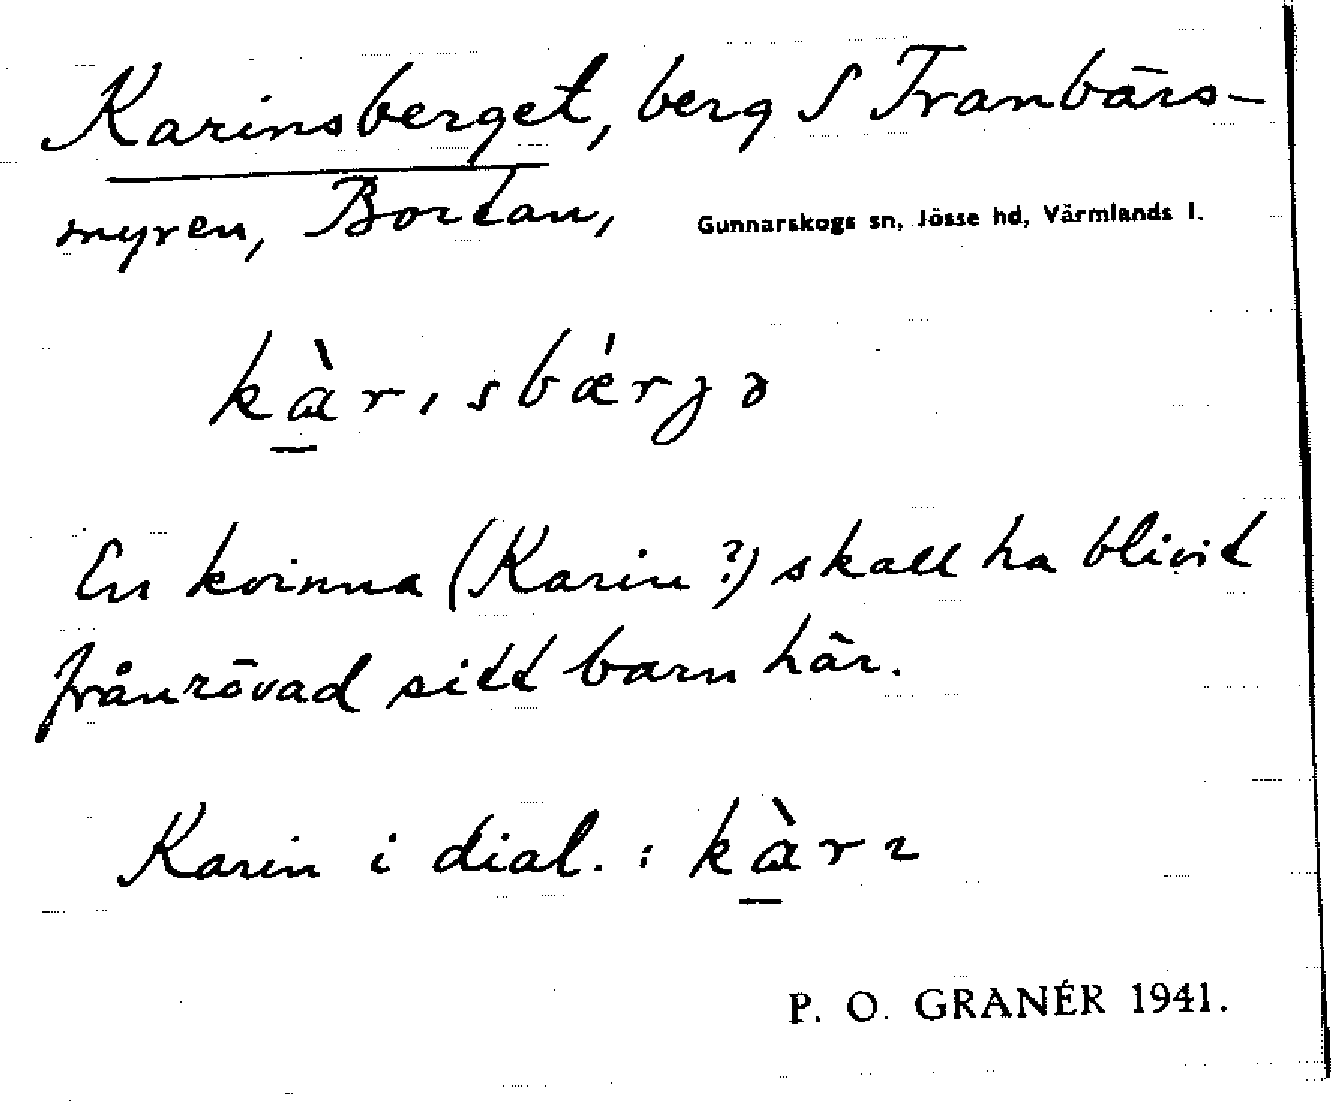 Karinsberget, berg S Tranbärs-
myren, Bortan, Gunnarskogs sn, Jösse hd, Värmlands l.
kàrɩsbǽrjə
En kvinna (Karin?) skall ha blivit
frånrövad sitt barn här.
Karin i dial.: kàrɩ
P. O. GRANÉR 1941.